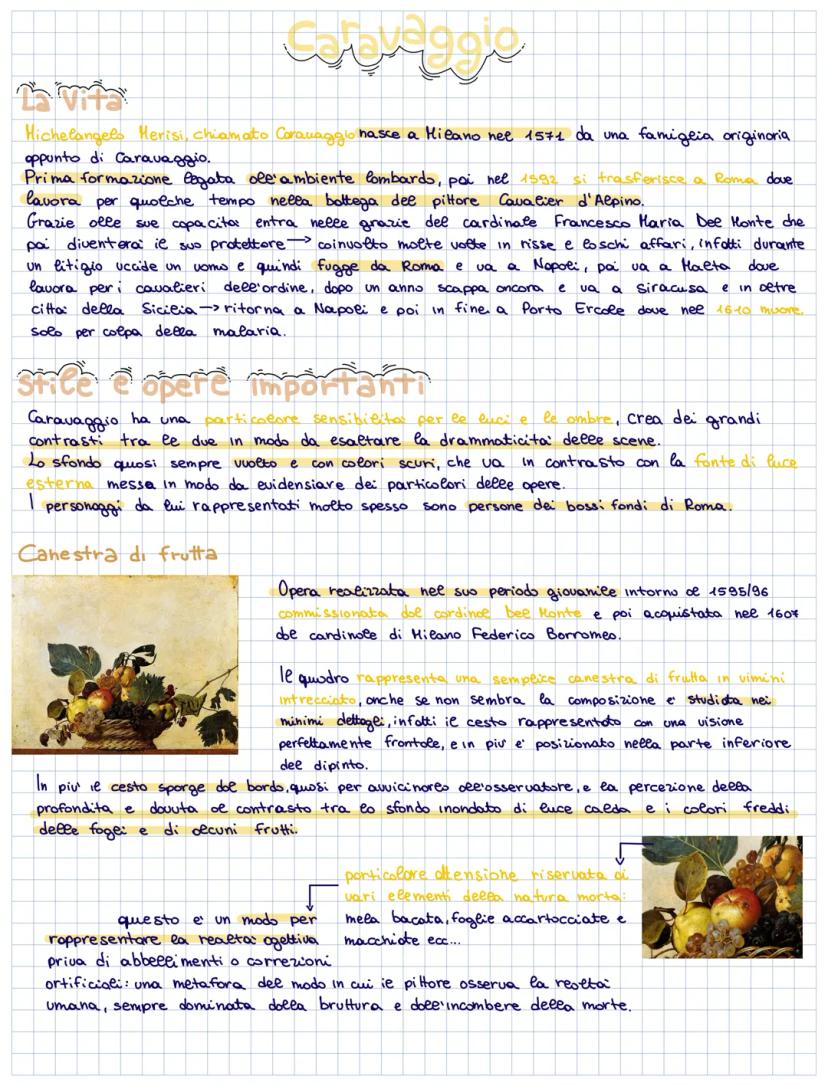 Caravaggio
La Vita
Michelangelo Merisi, chiamato Caravaggio nasce a Milano nel 1571 da una famiglia originaria
appunto di Caravaggio.
Prima formazione legata all'ambiente lombardo, poi nel 1592 si trasferisce a Roma dove
lavora per qualche tempo nella bottega del pittore Cavalier d'Alpino.
Grazie alle sue capacità entra nelle grazie del cardinale Francesco Maria Del Monte che
poi diventerà il suo protettore → coinvolto molte volte in risse e loschi affari, infatti durante
un litigio uccide un uomo e quindi fugge da Roma e va a Napoli, poi va a Malta dove
lavora per i cavalieri dell'ordine, dopo un anno scappa ancora e va a Siracusa e in altre
città della Sicilia → ritorna a Napoli e poi in fine a Porto Ercole dove nel 1610 muore,
solo per colpa della malaria.
stile e opere importanti
Caravaggio ha una particolare sensibilità per le luci e le ombre, crea dei grandi
contrasti tra le due in modo da esaltare la drammaticità delle scene.
Lo sfondo quasi sempre vuoto e con colori scuri, che va in contrasto con la fonte di luce
esterna messa in modo da evidensiare dei particolari delle opere.
I personaggi da lui rappresentati molto spesso sono persone dei bassi fondi di Roma.
Canestra di frutta
Opera realizzata nel suo periodo giovanile intorno al 1595/96
commissionata dal cardinal Del Monte e poi acquistata nel 1607
dal cardinale di Milano Federico Borromeo.
Il quadro rappresenta una semplice canestra di frutta in vimini
intrecciato, anche se non sembra la composizione è studiata nei
minimi dettagli, infatti il cesto rappresentato con una visione
perfettamente frontale, e in più è posizionato nella parte inferiore
del dipinto.
In più il cesto sporge dal bordo, quasi per avvicinarlo all'osservatore, e la percezione della
profondità e dovuta al contrasto tra lo sfondo inondato di luce calda e i colori freddi
delle foglie e di alcuni frutti.
particolare attensione riservata ai
vari elementi della natura morta:
mela bacata, foglie accartocciate e
macchiate ecc...
questo è un modo per
rappresentare la realtà oggettiva
priva di abbellimenti o correzioni
artificiali: una metafora del modo in cui il pittore osserva la realtà
umana, sempre dominata dalla bruttura e dall'incombere della morte.